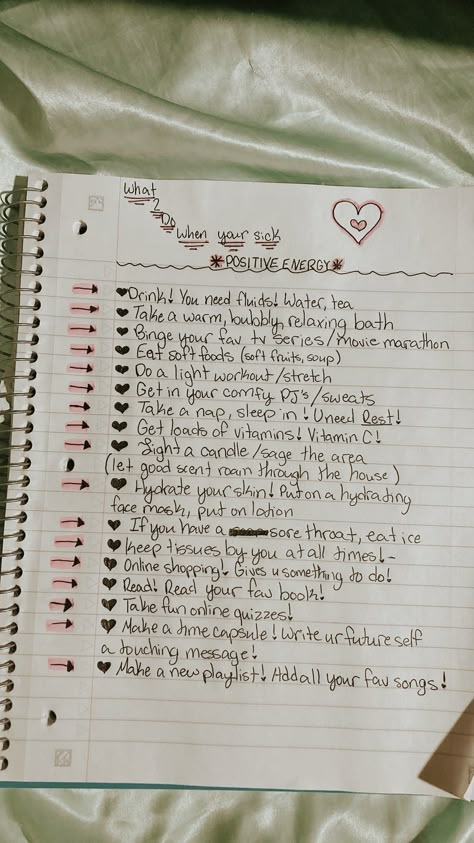 What
2
Do
When your sick
*POSITIVE ENERGY*
Drink! You need fluids! Water, tea
Take a warm, bubbly, relaxing bath
Binge your fav tv series/movie marathon
Eat soft foods (soft fruits, soup)
Do a light workout/stretch
Get in your comfy PJ's/sweats
Take a nap, sleep in! U need Rest!
Get loads of vitamins! Vitamin C!
Light a candle/sage the area
(let good scent roam through the house)
Hydrate your skin! Put on a hydrating
face mask, put on lotion
If you have a sore throat, eat ice
Keep tissues by you at all times!-
Online shopping! Gives u something to do!
Read! Read your fav book!
Take fun online quizzes!
Make a time capsule! Write ur future self
a touching message!
Make a new playlist! Add all your fav songs!